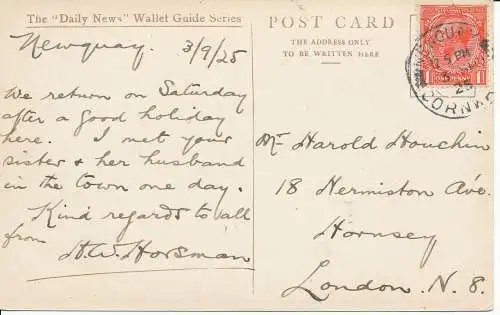 The "Daily News" Wallet Guide Series
Newquay. 3/9/25
We return on Saturday
after a good holiday
here. I met your
sister & her husband
in the town one day.
Kind regards to all
from H.W. Horsman
POST CARD
THE ADDRESS ONLY
TO BE WRITTEN HERE
Mr Harold Houchin
18 Hermiston Ave.
Hornsey
London. N. 8.
CORNWALL
ONE PENNY